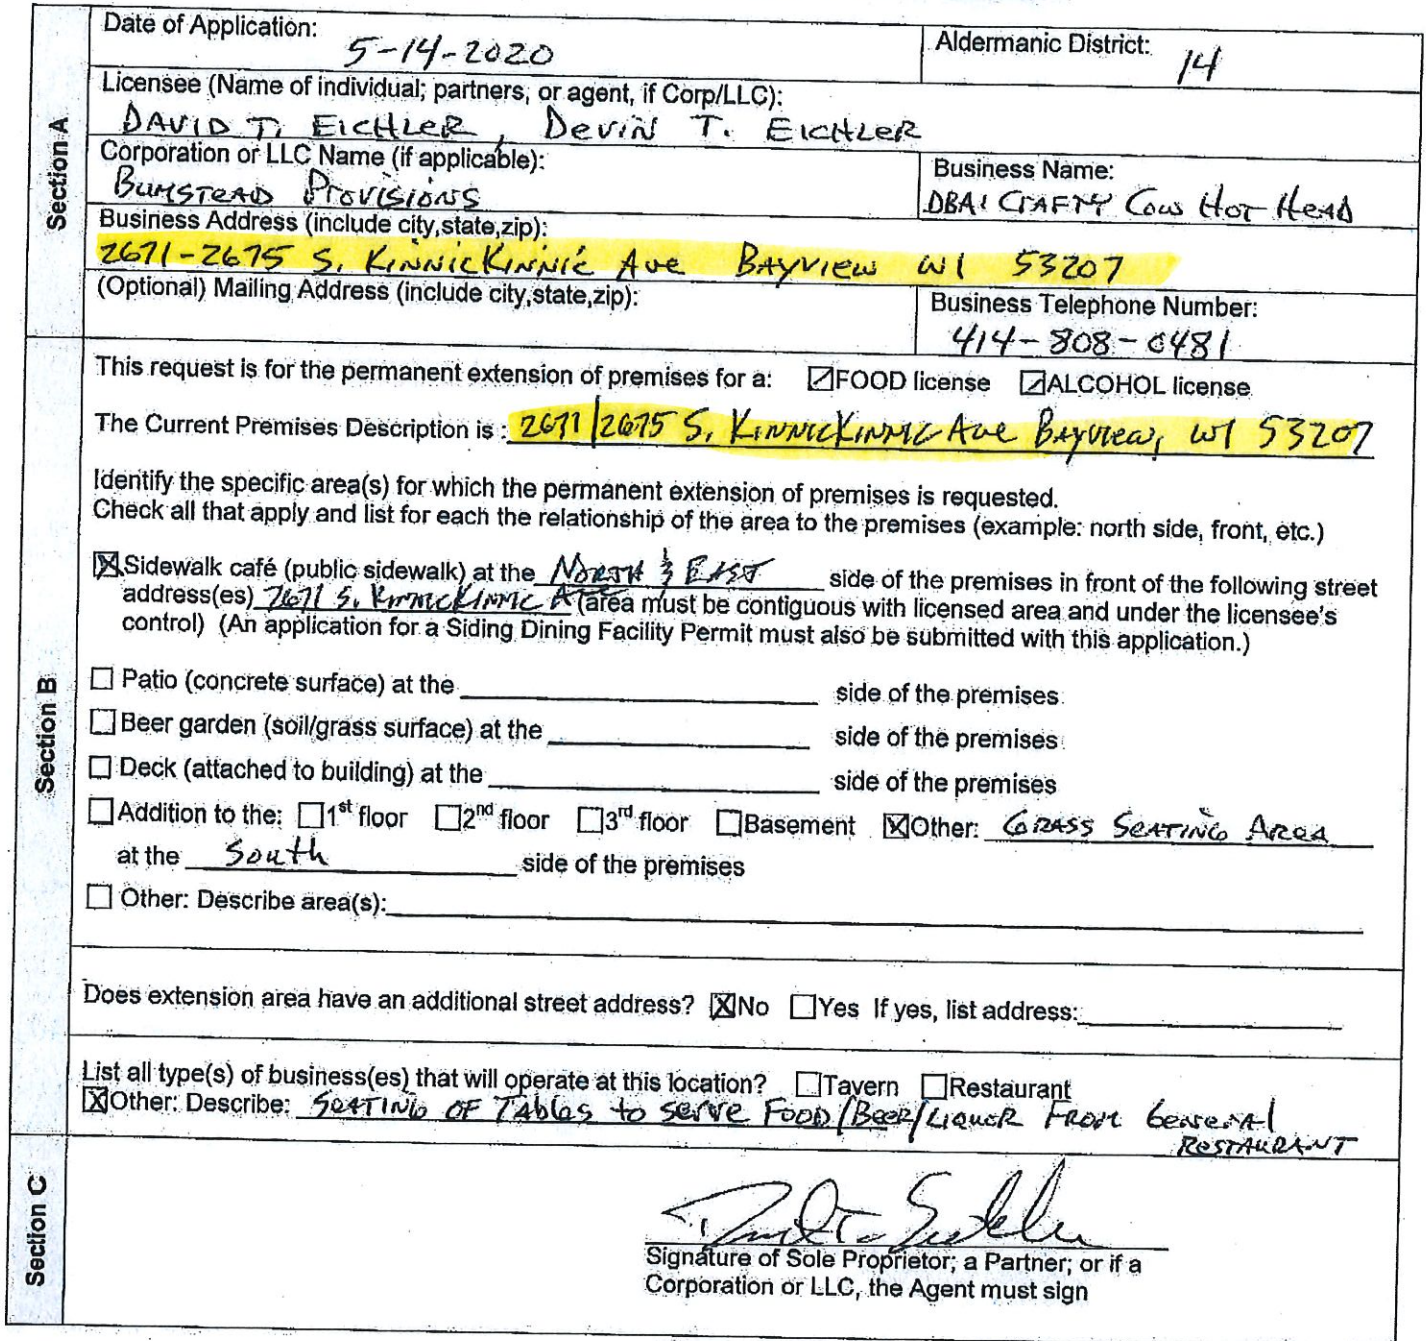 Date of Application: 5-14-2020 Aldermanic District: 14
Licensee (Name of individual; partners, or agent, if Corp/LLC):
DAVID T. EICHLER, DEVIN T. EICHLER
Corporation or LLC Name (if applicable): Business Name:
BUMSTEAD PROVISIONS DBA: CRAFTY COW HOT HEAD
Business Address (include city,state,zip):
2671-2675 S. KINNICKINNIC AVE BAYVIEW WI 53207
(Optional) Mailing Address (include city,state,zip): Business Telephone Number:
414-808-0481
Section A
This request is for the permanent extension of premises for a: ☑FOOD license ☑ALCOHOL license
The Current Premises Description is : 2671/2675 S. KINNICKINNIC AVE BAYVIEW, WI 53207
Identify the specific area(s) for which the permanent extension of premises is requested.
Check all that apply and list for each the relationship of the area to the premises (example: north side, front, etc.)
☒Sidewalk café (public sidewalk) at the NORTH & EAST side of the premises in front of the following street
address(es) 2671 S. KINNICKINNIC A (area must be contiguous with licensed area and under the licensee's
control) (An application for a Siding Dining Facility Permit must also be submitted with this application.)
☐ Patio (concrete surface) at the side of the premises
☐ Beer garden (soil/grass surface) at the side of the premises
☐ Deck (attached to building) at the side of the premises
☐Addition to the: ☐1st floor ☐2nd floor ☐3rd floor ☐Basement ☒Other: GRASS SEATING AREA
at the South side of the premises
☐ Other: Describe area(s):
Does extension area have an additional street address? ☒No ☐Yes If yes, list address:
List all type(s) of business(es) that will operate at this location? ☐Tavern ☐Restaurant
☒Other: Describe: SEATING OF TABLES to SERVE FOOD/BEER/LIQUOR FROM GENERAL
RESTAURANT
Section B
Signature of Sole Proprietor; a Partner; or if a
Corporation or LLC, the Agent must sign
Section C